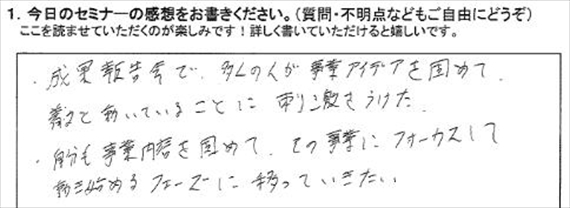 1. 今日のセミナーの感想をお書きください。(質問・不明点などもご自由にどうぞ)
ここを読ませていただくのが楽しみです!詳しく書いていただけると嬉しいです。
・成果報告会で、多くの人が事業アイデアを固めて、
着々と動いていることに刺激をうけた。
・自分も事業内容を固めて、その事業にフォーカスして
動き始めるフェーズに移っていきたい